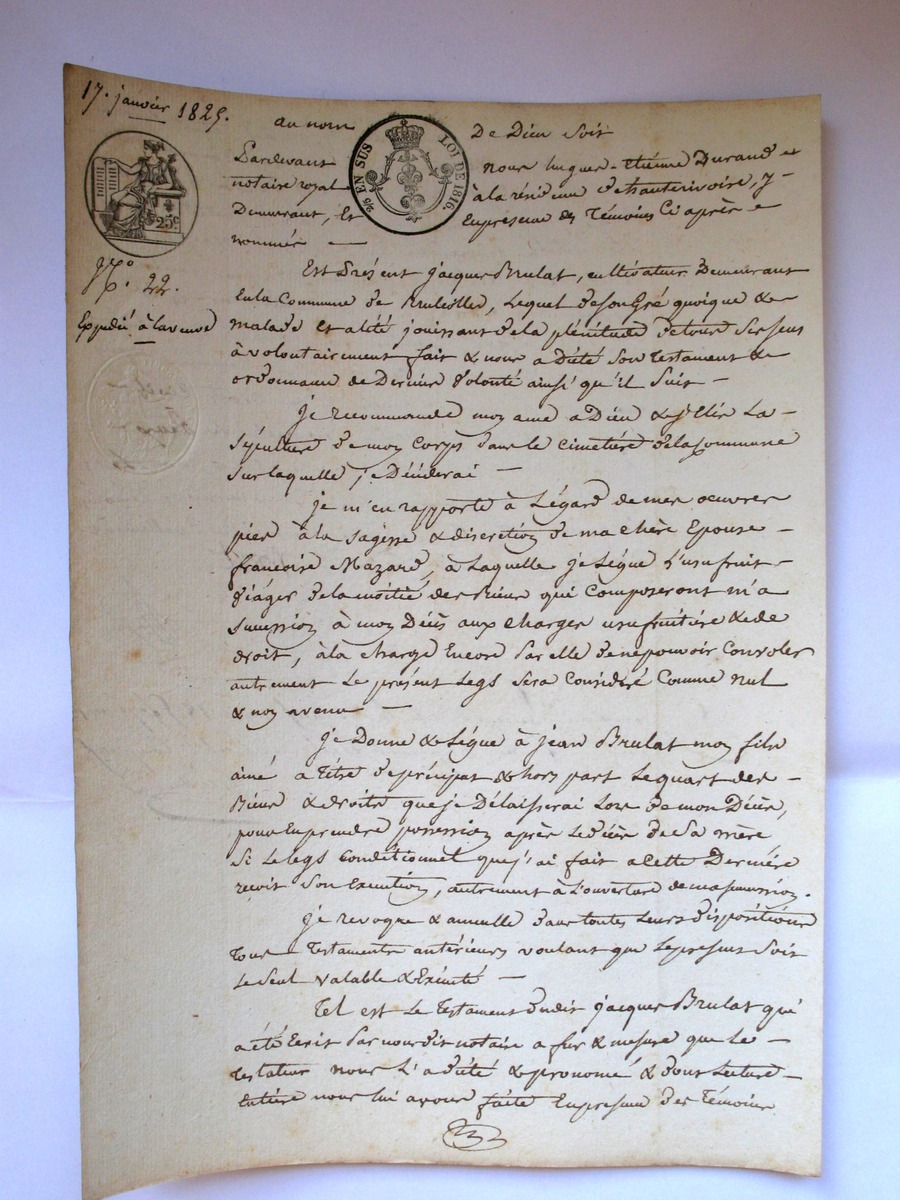 17. janvier 1825.
au nom De Dieu soit
Pardevant nous hugues-etiénne Durand
notaire royal à la résidence d'hauterivoire, y
Demeurant, Et En présence des Témoins Ci après
nommés —
25 c
2/5 EN SUS LOI DE 1816.
N.° 22.
Expédié à la veuve
Est Présent jacques Brulat, cultivateur Demeurant
En la Commune de Brulliolles, Lequel de son Gré quoique
malade et alité jouissant de la plénitude de tous ses sens
à volontairement fait & nous a Dicté son testament &
ordonnance de Dernière Volonté ainsi qu'il suit —
je recommande mon ame a Dieu & j'Elis La
Sépulture de mon Corps dans le Cimetière de la Commune
sur laquelle je Décéderai —
je m'en rapporte à L'égard de mes oeuvres
pies à la sagesse & discretion de ma chère Epouse
francoise Mazard, à Laquelle je Légue L'usufruit
viager de la moitié des Biens qui Composeront ma
succession à mon Décès aux charges usufruitière & de
droit, à la charge Encore Par elle de ne pouvoir Convoler
autrement Le présent Legs sera Considéré Comme nul
& non avenu —
je Donne & Légue à jean Brulat mon fils
ainé a titre de préciput & hors part Le quart des
Biens & droits que je Délaisserai Lors de mon Décès,
pour En prendre possession après Le décès de Sa mère
Si Le legs Conditionnel que j'ai fait a Cette Dernière
reçoit son Execution, autrement à L'ouverture de ma succession.
je revoque & annulle dans toutes Leurs dispositions
tous Testaments antérieurs voulant que Le présent soit
Le seul valable & Exécuté —
Tel est Le Testament dudit jacques Brulat qui
a été Ecrit Par nous dit notaire a fur & mesure que Le
Testateur nous L'a dicté & prononcé & dont Lecture
Entière nous lui avons faite En présence des Témoins